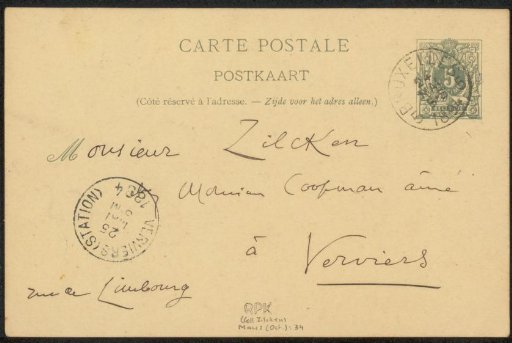 CARTE POSTALE
POSTKAART
(Côté réservé à l'adresse. — Zijde voor het adres alleen.)
5
Monsieur Zilcken
Coopman aîné
à
Verviers
rue de Limbourg
VERVIERS (STATION)
25
MAI
1894
RPK
(Coll Zilcken)